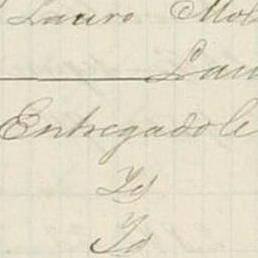 Lauro Mol
Lau
Entregadole
Id
Id